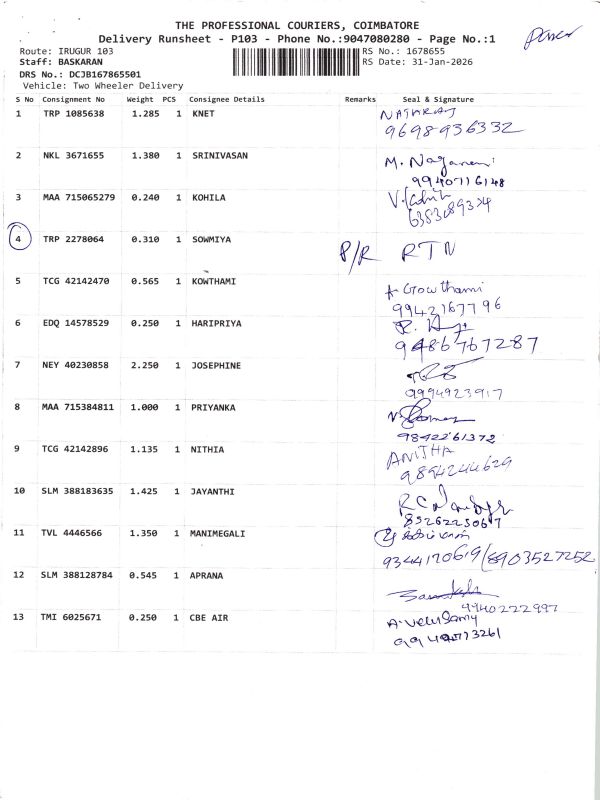 THE PROFESSIONAL COURIERS, COIMBATORE
Delivery Runsheet - P103 - Phone No.:9047080280 - Page No.:1
Route: IRUGUR 103
RS No.: 1678655
Staff: BASKARAN
RS Date: 31-Jan-2026
DRS No.: DCJB167865501
Vehicle: Two Wheeler Delivery
S No Consignment No Weight PCS Consignee Details Remarks Seal & Signature
1 TRP 1085638 1.285 1 KNET NATARAJ
9698936332
2 NKL 3671655 1.380 1 SRINIVASAN M. Nagamani
9940716148
3 MAA 715065279 0.240 1 KOHILA
6383089374
4 TRP 2278064 0.310 1 SOWMIYA P/R RTN
5 TCG 42142470 0.565 1 KOWTHAMI A Gowthami
9942167796
6 EDQ 14578529 0.250 1 HARIPRIYA
9486767287
7 NEY 40230858 2.250 1 JOSEPHINE
9994923917
8 MAA 715384811 1.000 1 PRIYANKA
9842261372
9 TCG 42142896 1.135 1 NITHIA ANITHA
9894244629
10 SLM 388183635 1.425 1 JAYANTHI
8526225067
11 TVL 4446566 1.350 1 MANIMEGALI
9344170619/8903527252
12 SLM 388128784 0.545 1 APRANA
9940222997
13 TMI 6025671 0.250 1 CBE AIR A. Velusamy